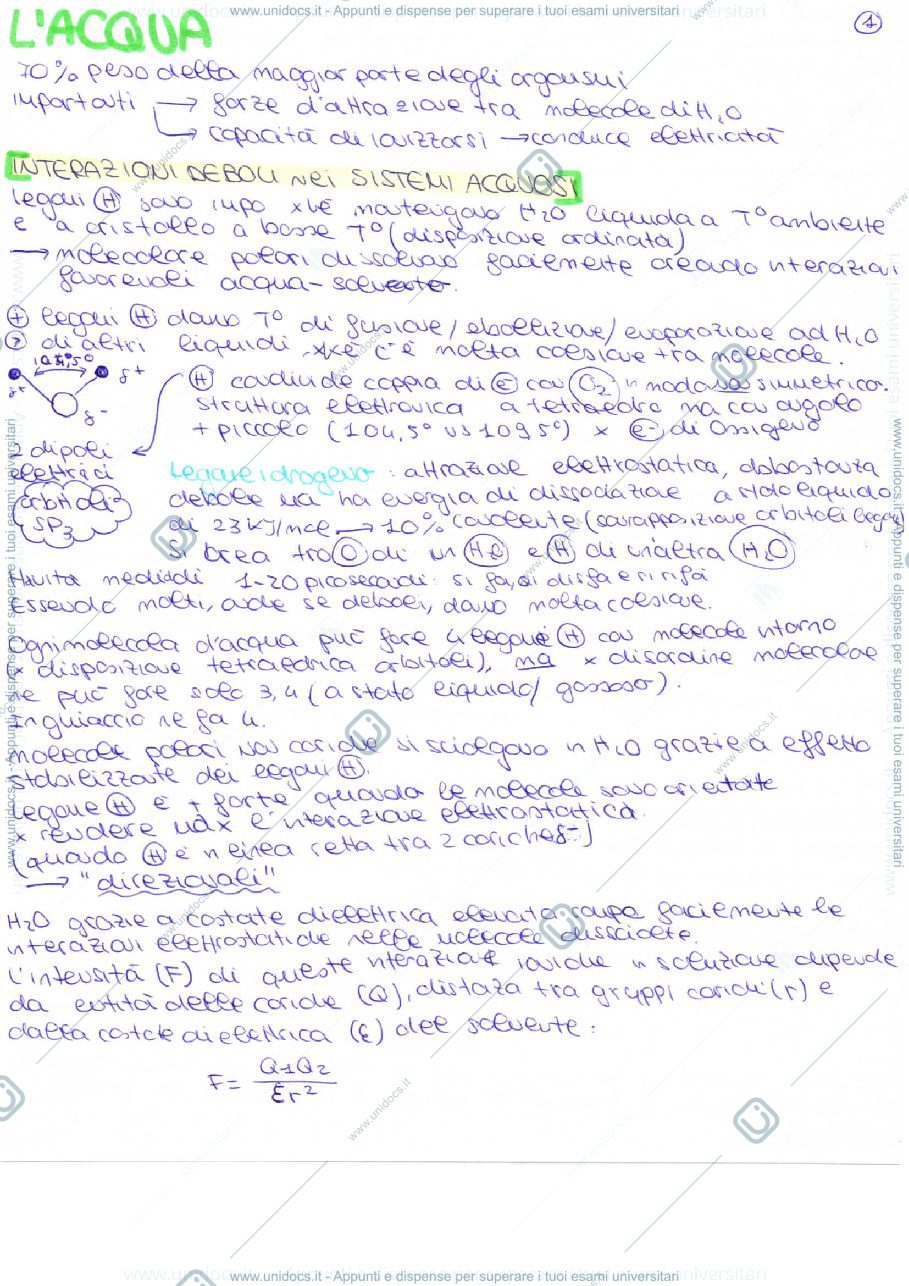 www.unidocs.it - Appunti e dispense per superare i tuoi esami universitari
L'ACQUA
1
70% peso della maggior parte degli organismi
importanti → forze d'attrazione tra molecole di H2O
→ capacità di ionizzarsi → conduce elettricità
INTERAZIONI DEBOLI nei SISTEMI ACQUOSI
legami H sono impo xké mantengono H2O liquida a T° ambiente
e a cristallo a basse T° (disposizione ordinata)
→ molecole polari dissolvono facilmente creando interazioni
favorevoli acqua-
+ legami H danno T° di fusione/ebollizione/evaporazione ad H2O
di altri liquidi xké c'è molta coesione tra molecole.
104,5°
δ+ δ+
δ-
H condivide coppia di e con O2 in modo non simmetrico.
struttura elettronica a tetraedro ma con angolo
+ piccolo (104,5° vs 109,5°) x e di Ossigeno
2 dipoli
elettrici
orbitali
SP3
Legame idrogeno: attrazione elettrostatica, abbastanza
debole ma ha energia di dissociazione a stato liquido
di 23 kJ/mol → 10% covalente (sovrapposizione orbitali legami)
Si crea tra O di un H2O e H di un'altra H2O
1-20 picosecondi: si fa, si disfa e si rifà
Essendo molti, anche se deboli, danno molta coesione.
Ogni molecola d'acqua può fare 4 legami H con molecole intorno
x disposizione tetraedrica orbitali), ma x disordine molecolare
ne può fare solo 3,4 (a stato liquido/gassoso).
In ghiaccio ne fa 4.
molecole polari non cariche si sciolgono in H2O grazie a effetto
stabilizzante dei legami H.
legame H è + forte quando le molecole sono orientate
x rendere max l'interazione elettrostatica.
(quando H è in linea retta tra 2 cariche δ-)
→ "direzionali"
H2O grazie a costante dielettrica elevata rompe facilmente le
interazioni elettrostatiche nelle molecole dissciolte.
L'intensità (F) di queste interazioni ioniche in soluzione dipende
da entità delle cariche (Q), distanza tra gruppi carichi (r) e
dalla costante dielettrica (ε) del solvente:
F = Q1Q2 / εr²
www.unidocs.it - Appunti e dispense per superare i tuoi esami universitari